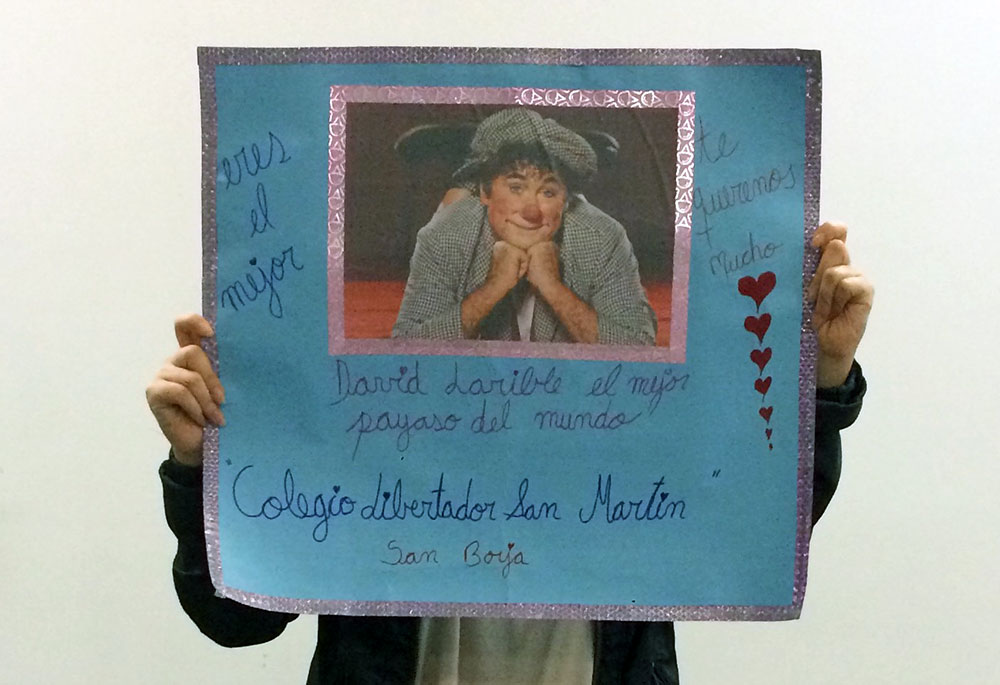 eres
el
mejor
te
queremos
mucho
David Larible el mejor
payaso del mundo
"Colegio Libertador San Martin"
San Borja